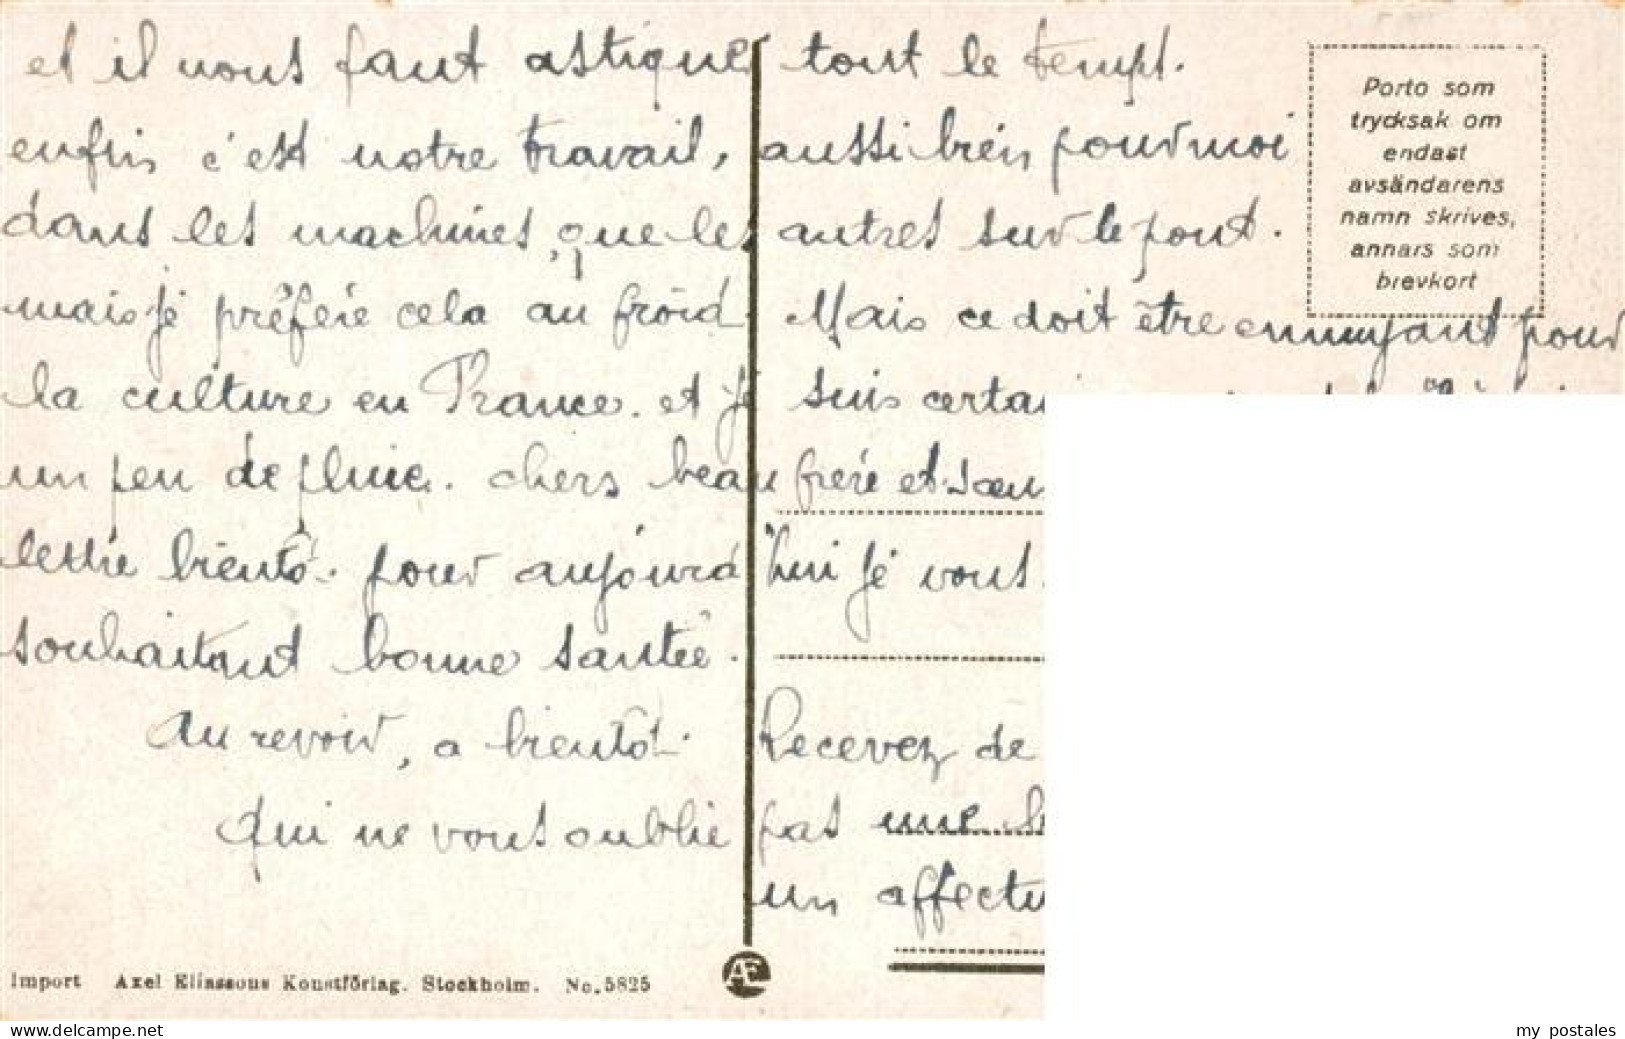 et il nous faut astiquer tout le temps.
enfin c'est notre travail, aussi bien pour moi
dans les machines, que les autres sur le pont.
mais je préfére cela au froid. Mais ce doit être ennuyant pour
la culture en France. et je suis
un peu de pluie. chers beau frére et soeur
lettre bientôt. pour aujourd'hui je vous
souhaitant bonne santée.
Au revoir, a bientôt. Recevez de
qui ne vous oublie pas une
un
Porto som
trycksak om
endast
avsändarens
namn skrives,
annars som
brevkort
Import Axel Eliassons Konstförlag. Stockholm. No. 5825
AE
www.delcampe.net
my_postales